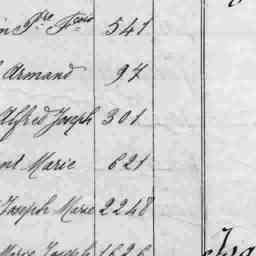 in Pre Fcois 541
Armand 97
Alfred Joseph 301
nt Marie 621
Joseph Marie 2248
Marie Joseph 1626